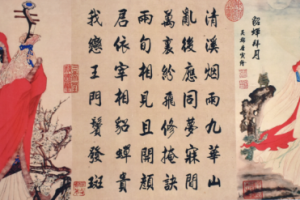 貂蟬拜月
清溪烟雨九華山
亂後應同夢寐間
萬裏紛飛修掩訣
兩旬相見且開顏
君依宰相貂蟬貴
我戀王門鬢發斑